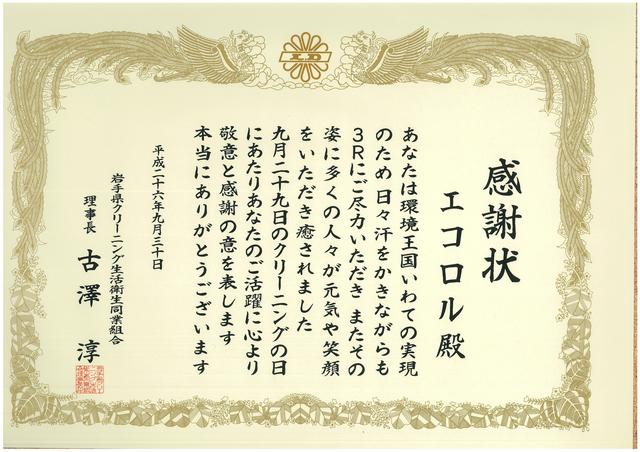 感謝状
エコロル殿
あなたは環境王国いわての実現
のため 日々汗をかきながらも
3Rにご尽力いただき またその
姿に多くの人々が元気や笑顔
をいただき癒されました
九月二十九日のクリーニングの日
にあたりあなたのご活躍に心より
敬意と感謝の意を表します
本当にありがとうございます
平成二十六年九月三十日
岩手県クリーニング生活衛生同業組合
理事長 古澤 淳